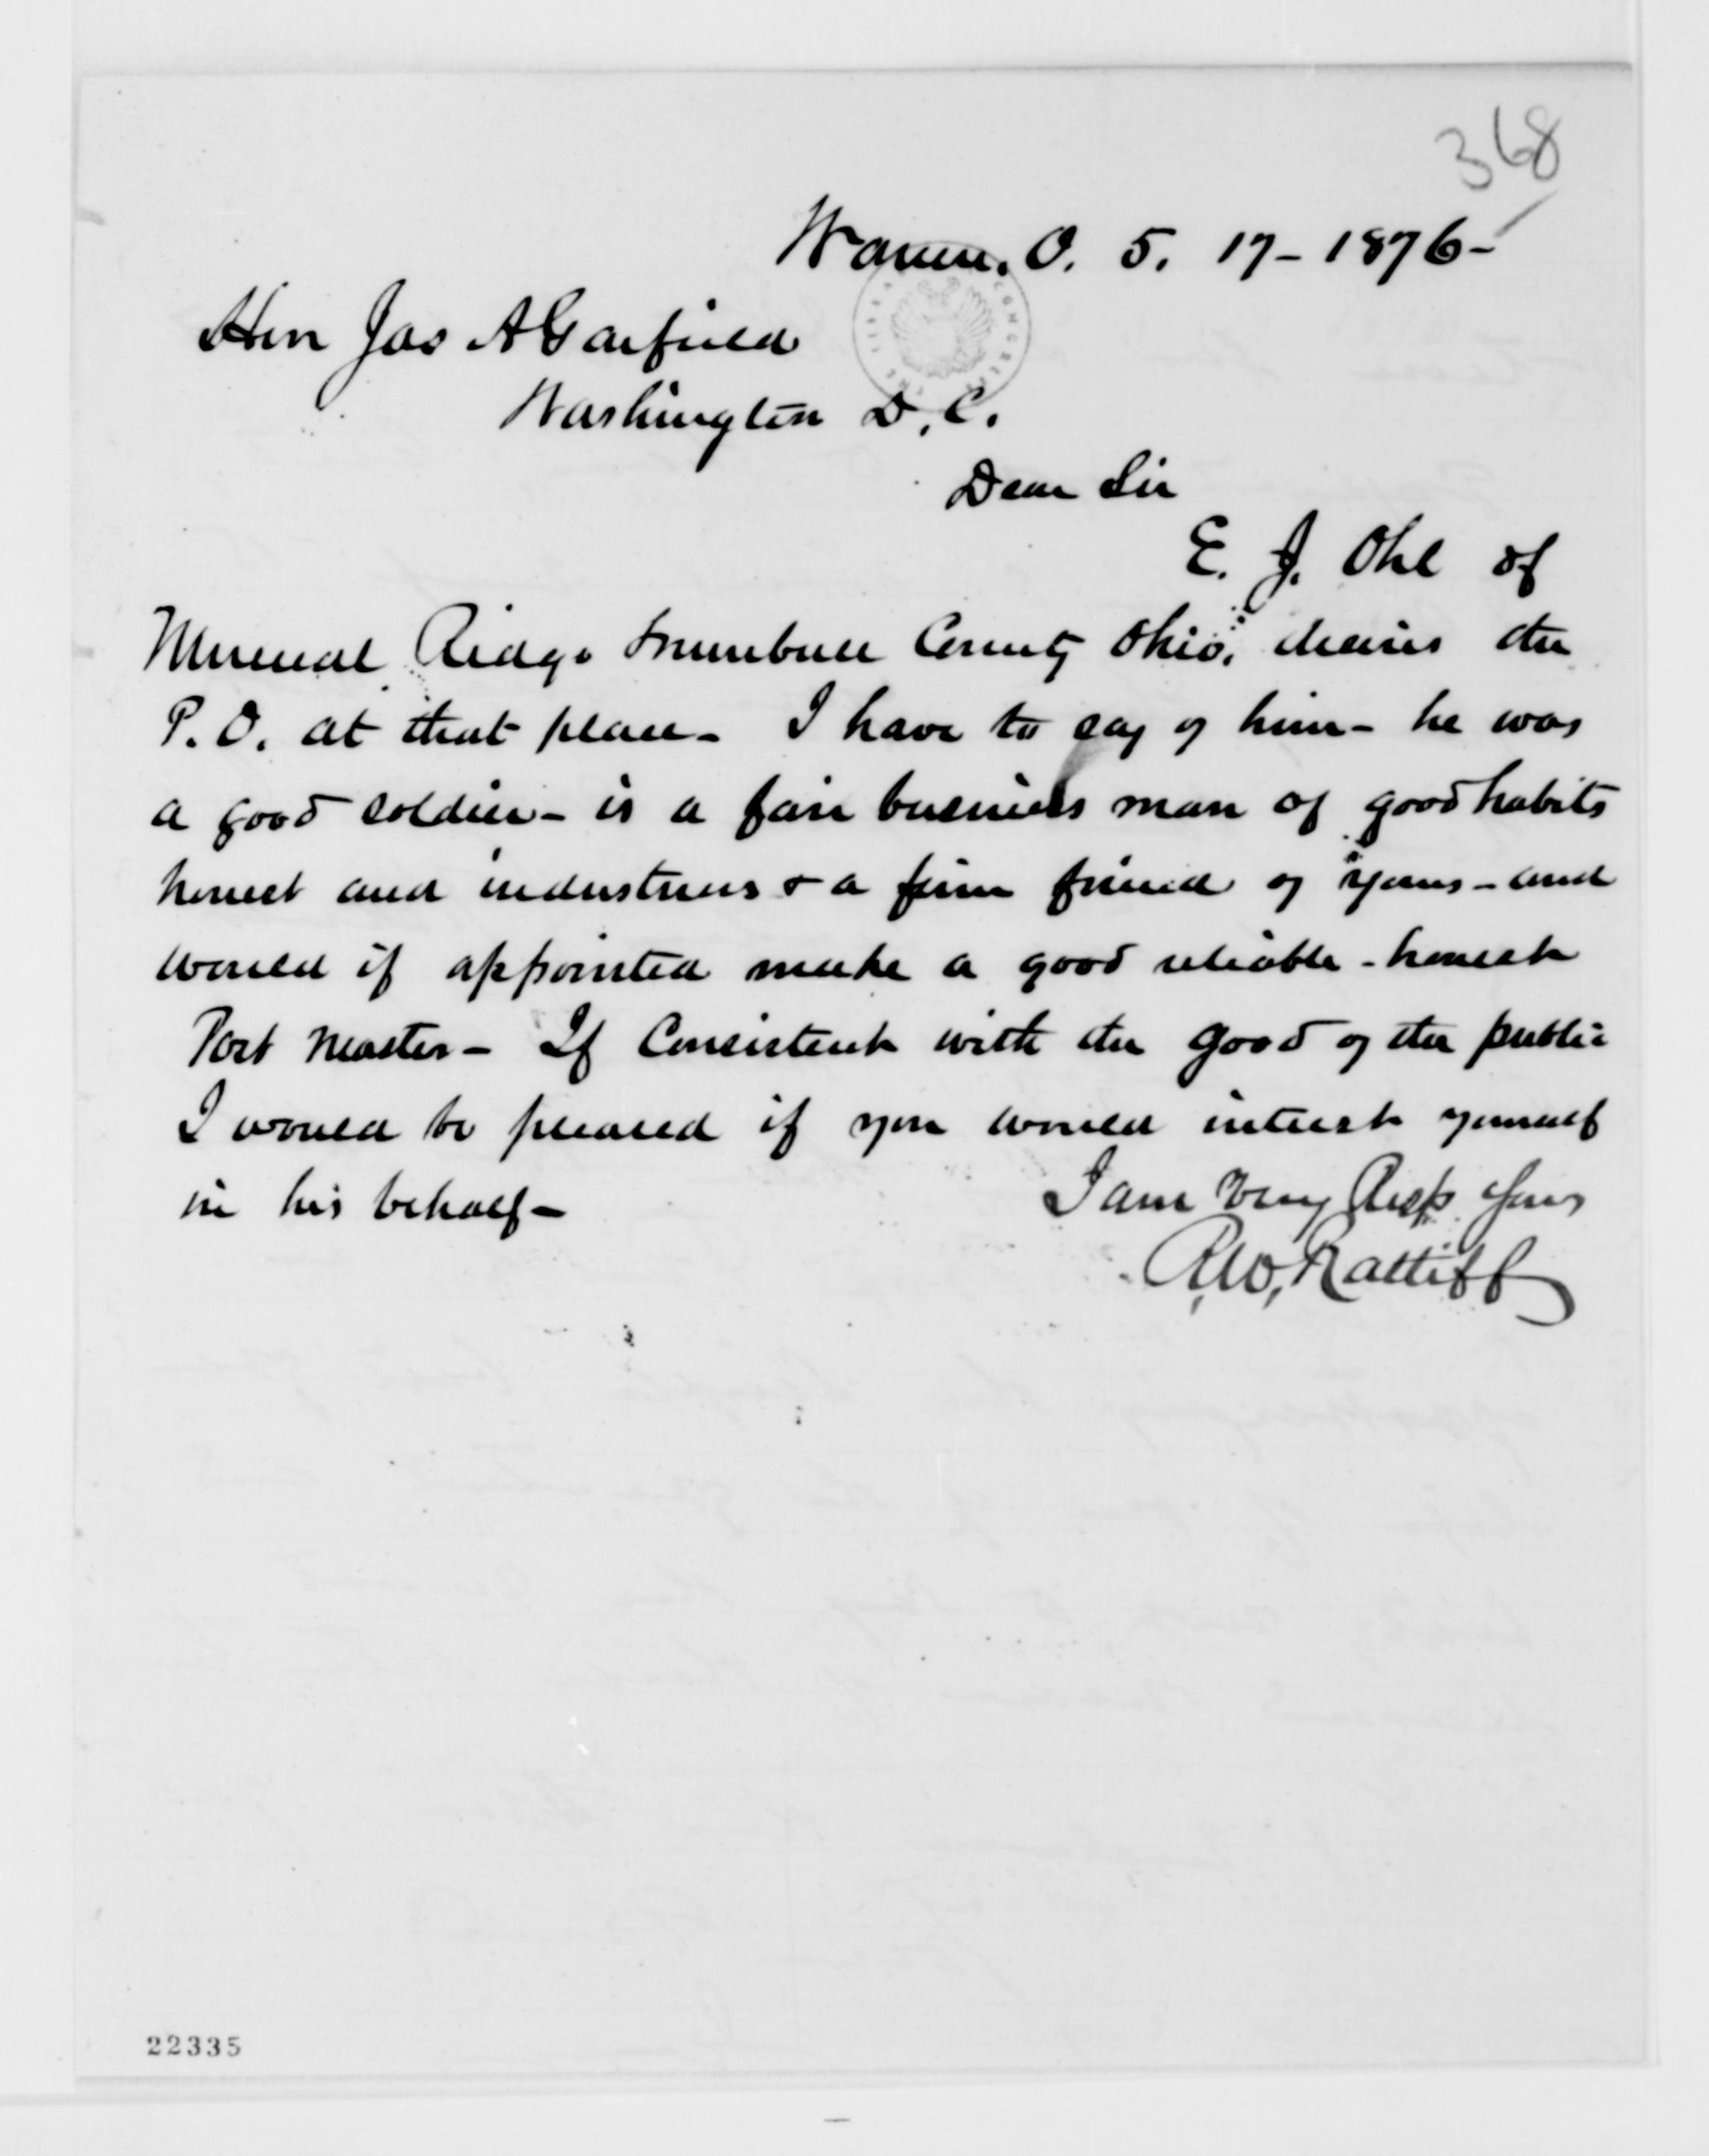 368
Warren. O. 5. 17- 1876-
Hon Jas A Garfield
Washington D. C.
Dear Sir
E. J. Ohl of
Mineral Ridge Trumbull County Ohio. desires the
P. O. at that place- I have to say of him- he was
a good soldier- is a fair business man of good habits
honest and industrious & a firm friend of yours- and
would if appointed make a good reliable - honest
Post Master- If Consistent with the good of the public
I would be pleased if you would interest yourself
in his behalf-
I am Very Resp Yours
R. W. Ratliff
22335